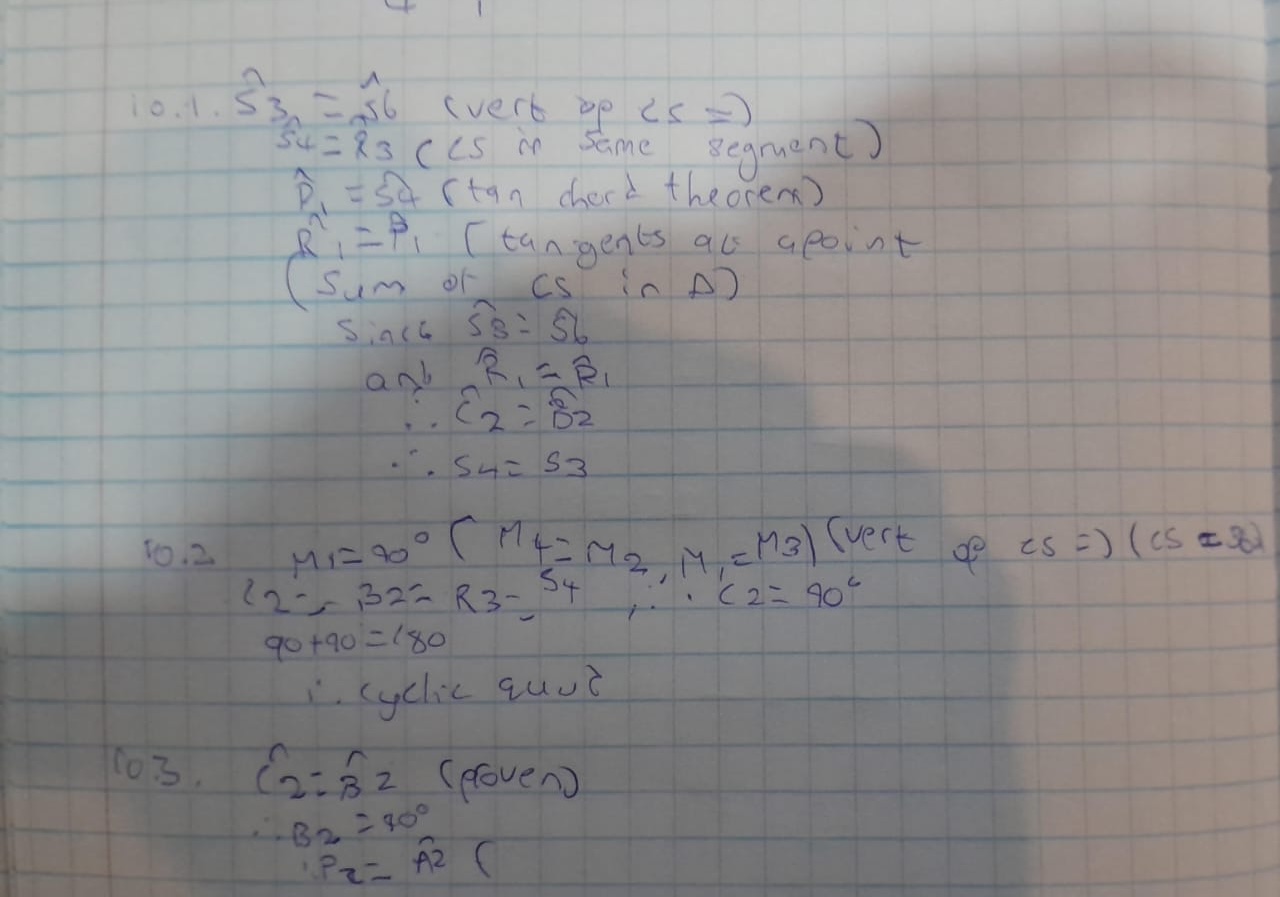 10.1. Ŝ3 = Ŝ6 (vert op <s =)
Ŝ4 = R̂3 (<s in same segment)
P̂1 = Ŝ4 (tan chord theorem)
R̂1 = P̂1 (tangents at apoint
(Sum of <s in Δ)
Since Ŝ3 = Ŝ6
and R̂1 = P̂1
∴ Ĉ2 = B̂2
∴ S4 = S3
10.2 M1 = 90° (M4 = M2, M1 = M3) (vert op <s =) (<s =
C2 = B2 = R3 = S4 ∴ C2 = 90°
90+90=180
∴ cyclic quad
10.3. Ĉ2 = B̂2 (proven)
∴ B2 = 90°
P2 = Â2 (